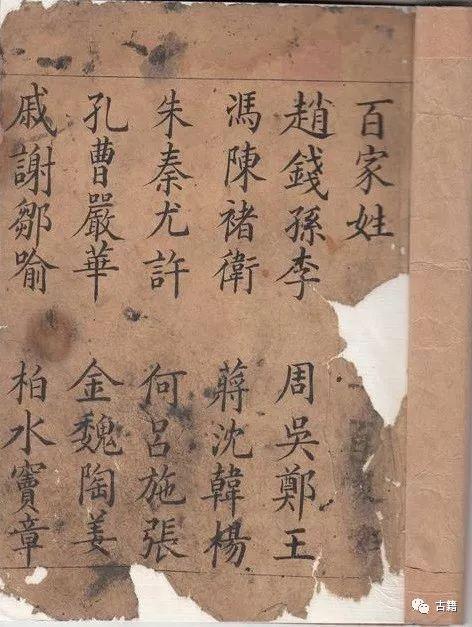 百家姓
趙錢孫李 周吳鄭王
馮陳褚衛 蔣沈韓楊
朱秦尤許 何呂施張
孔曹嚴華 金魏陶姜
戚謝鄒喻 柏水竇章
古籍